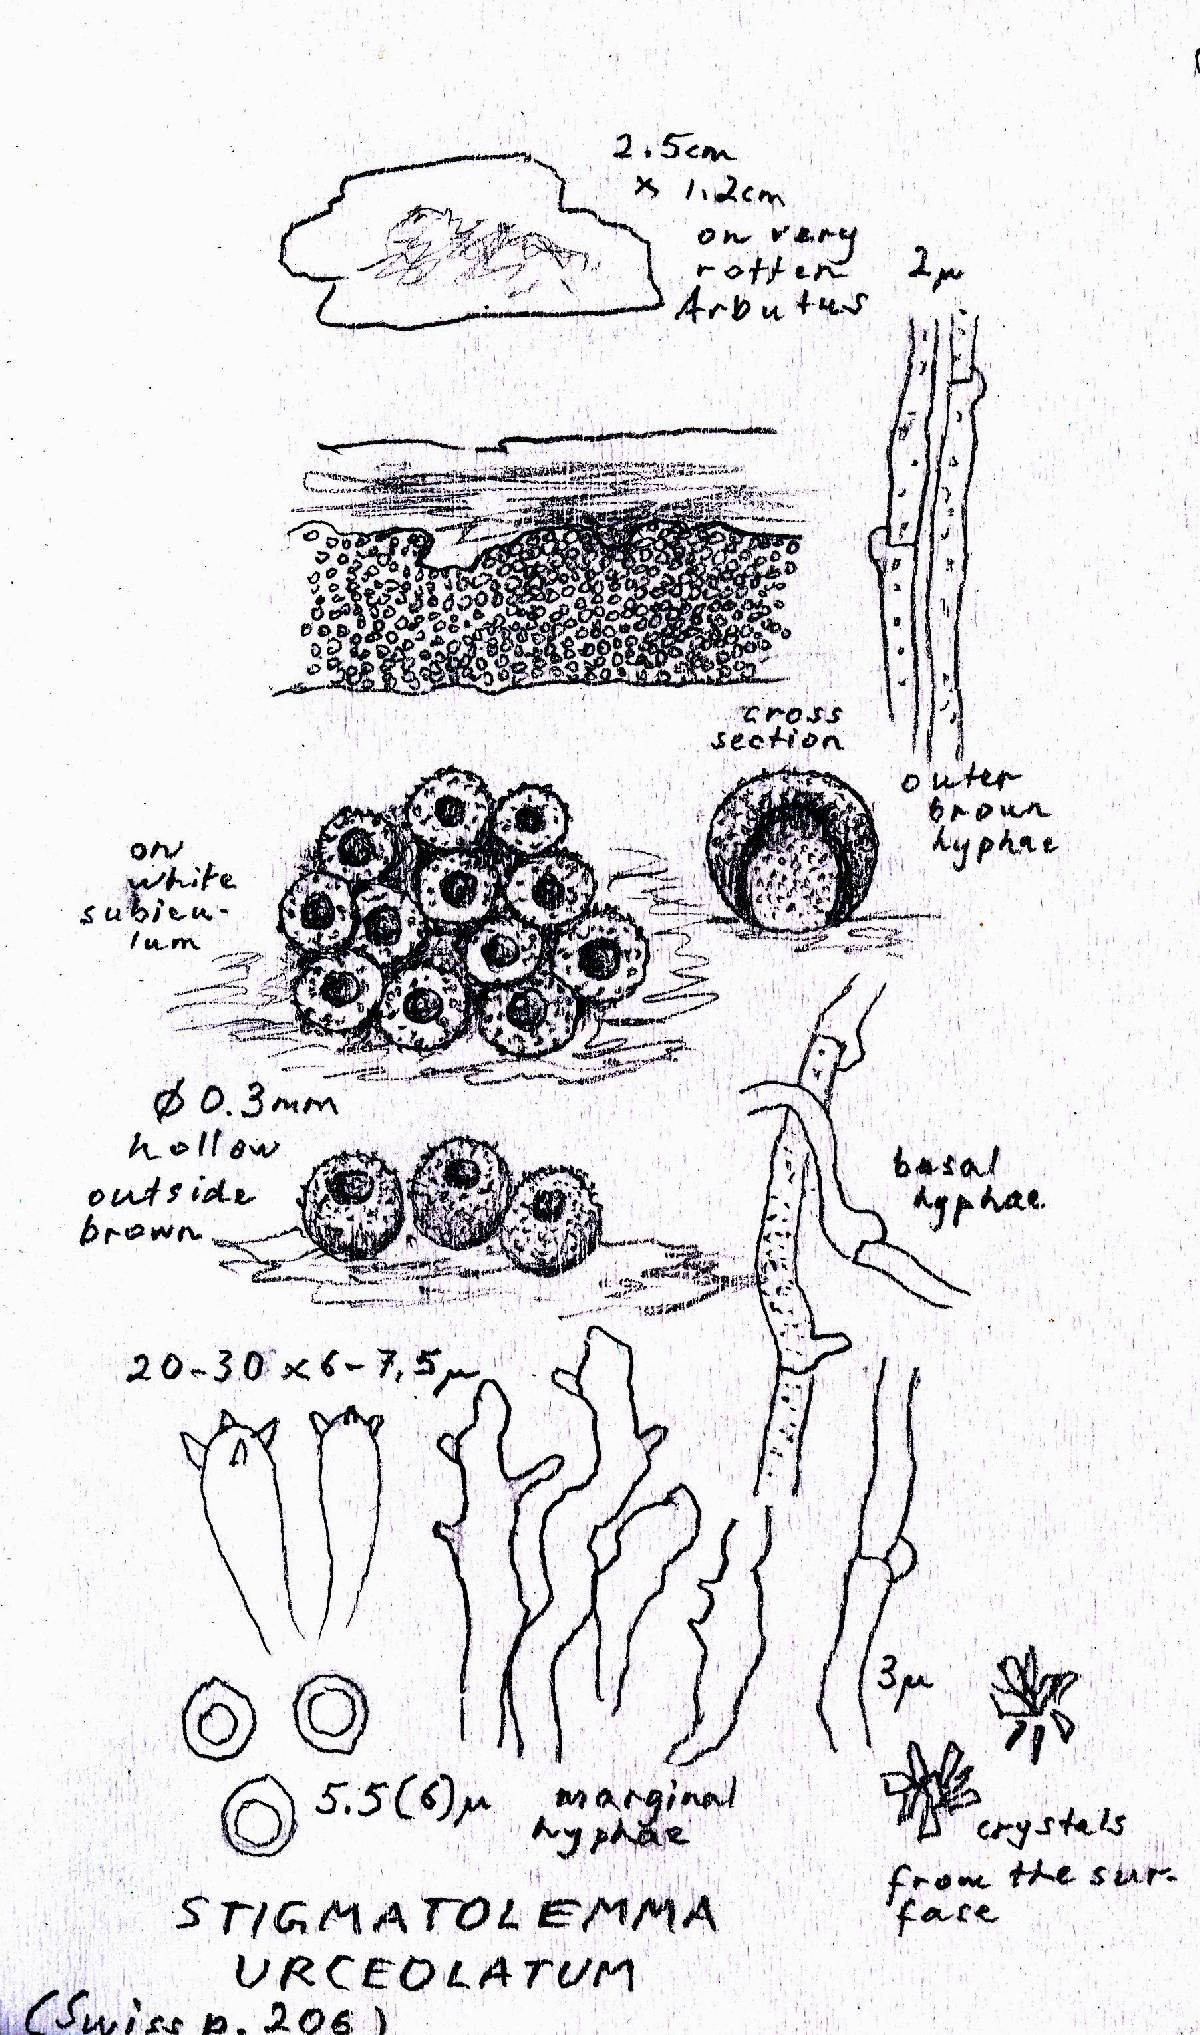 2.5cm
x 1.2cm
on very
rotten
Arbutus
2µ
cross
section
outer
brown
hyphae
on
white
subicu-
lum
Ø 0.3mm
hollow
outside
brown
basal
hyphae
20-30 x 6-7,5µ
3µ
5.5(6)µ
marginal
hyphae
crystals
from the sur-
face
STIGMATOLEMMA
URCEOLATUM
(Swiss p. 206)